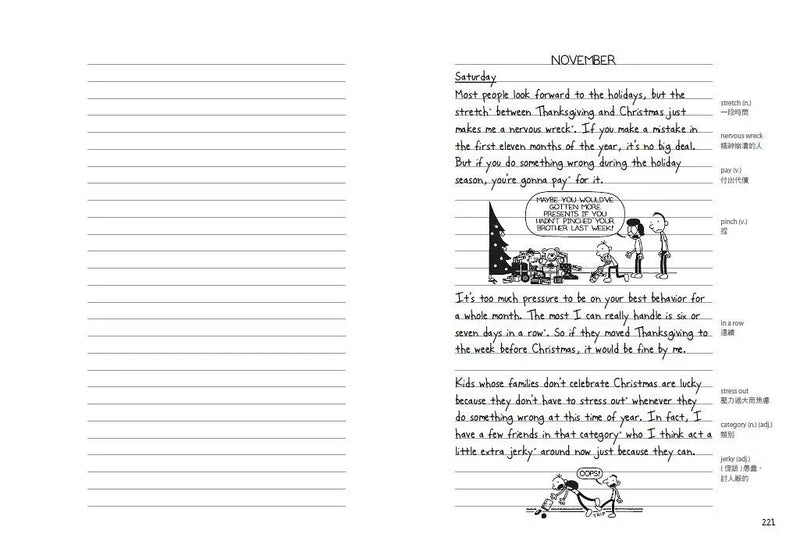 NOVEMBER
Saturday
Most people look forward to the holidays, but the
stretch* between Thanksgiving and Christmas just
makes me a nervous wreck*. If you make a mistake in
the first eleven months of the year, it's no big deal.
But if you do something wrong during the holiday
season, you're gonna pay* for it.
MAYBE YOU WOULD'VE
GOTTEN MORE
PRESENTS IF YOU
HADN'T PINCHED YOUR
BROTHER LAST WEEK!
It's too much pressure to be on your best behavior for
a whole month. The most I can really handle is six or
seven days in a row*. So if they moved Thanksgiving to
the week before Christmas, it would be fine by me.
Kids whose families don't celebrate Christmas are lucky
because they don't have to stress out* whenever they
do something wrong at this time of year. In fact, I
have a few friends in that category* who I think act a
little extra jerky* around now just because they can.
OOPS!
TRIP
stretch (n.)
一段時間
nervous wreck
精神崩潰的人
pay (v.)
付出代價
pinch (v.)
捏
in a row
連續
stress out
壓力過大而焦慮
category (n.) (adj.)
類別
jerky (adj.)
(俚語)愚蠢、
討人厭的
221